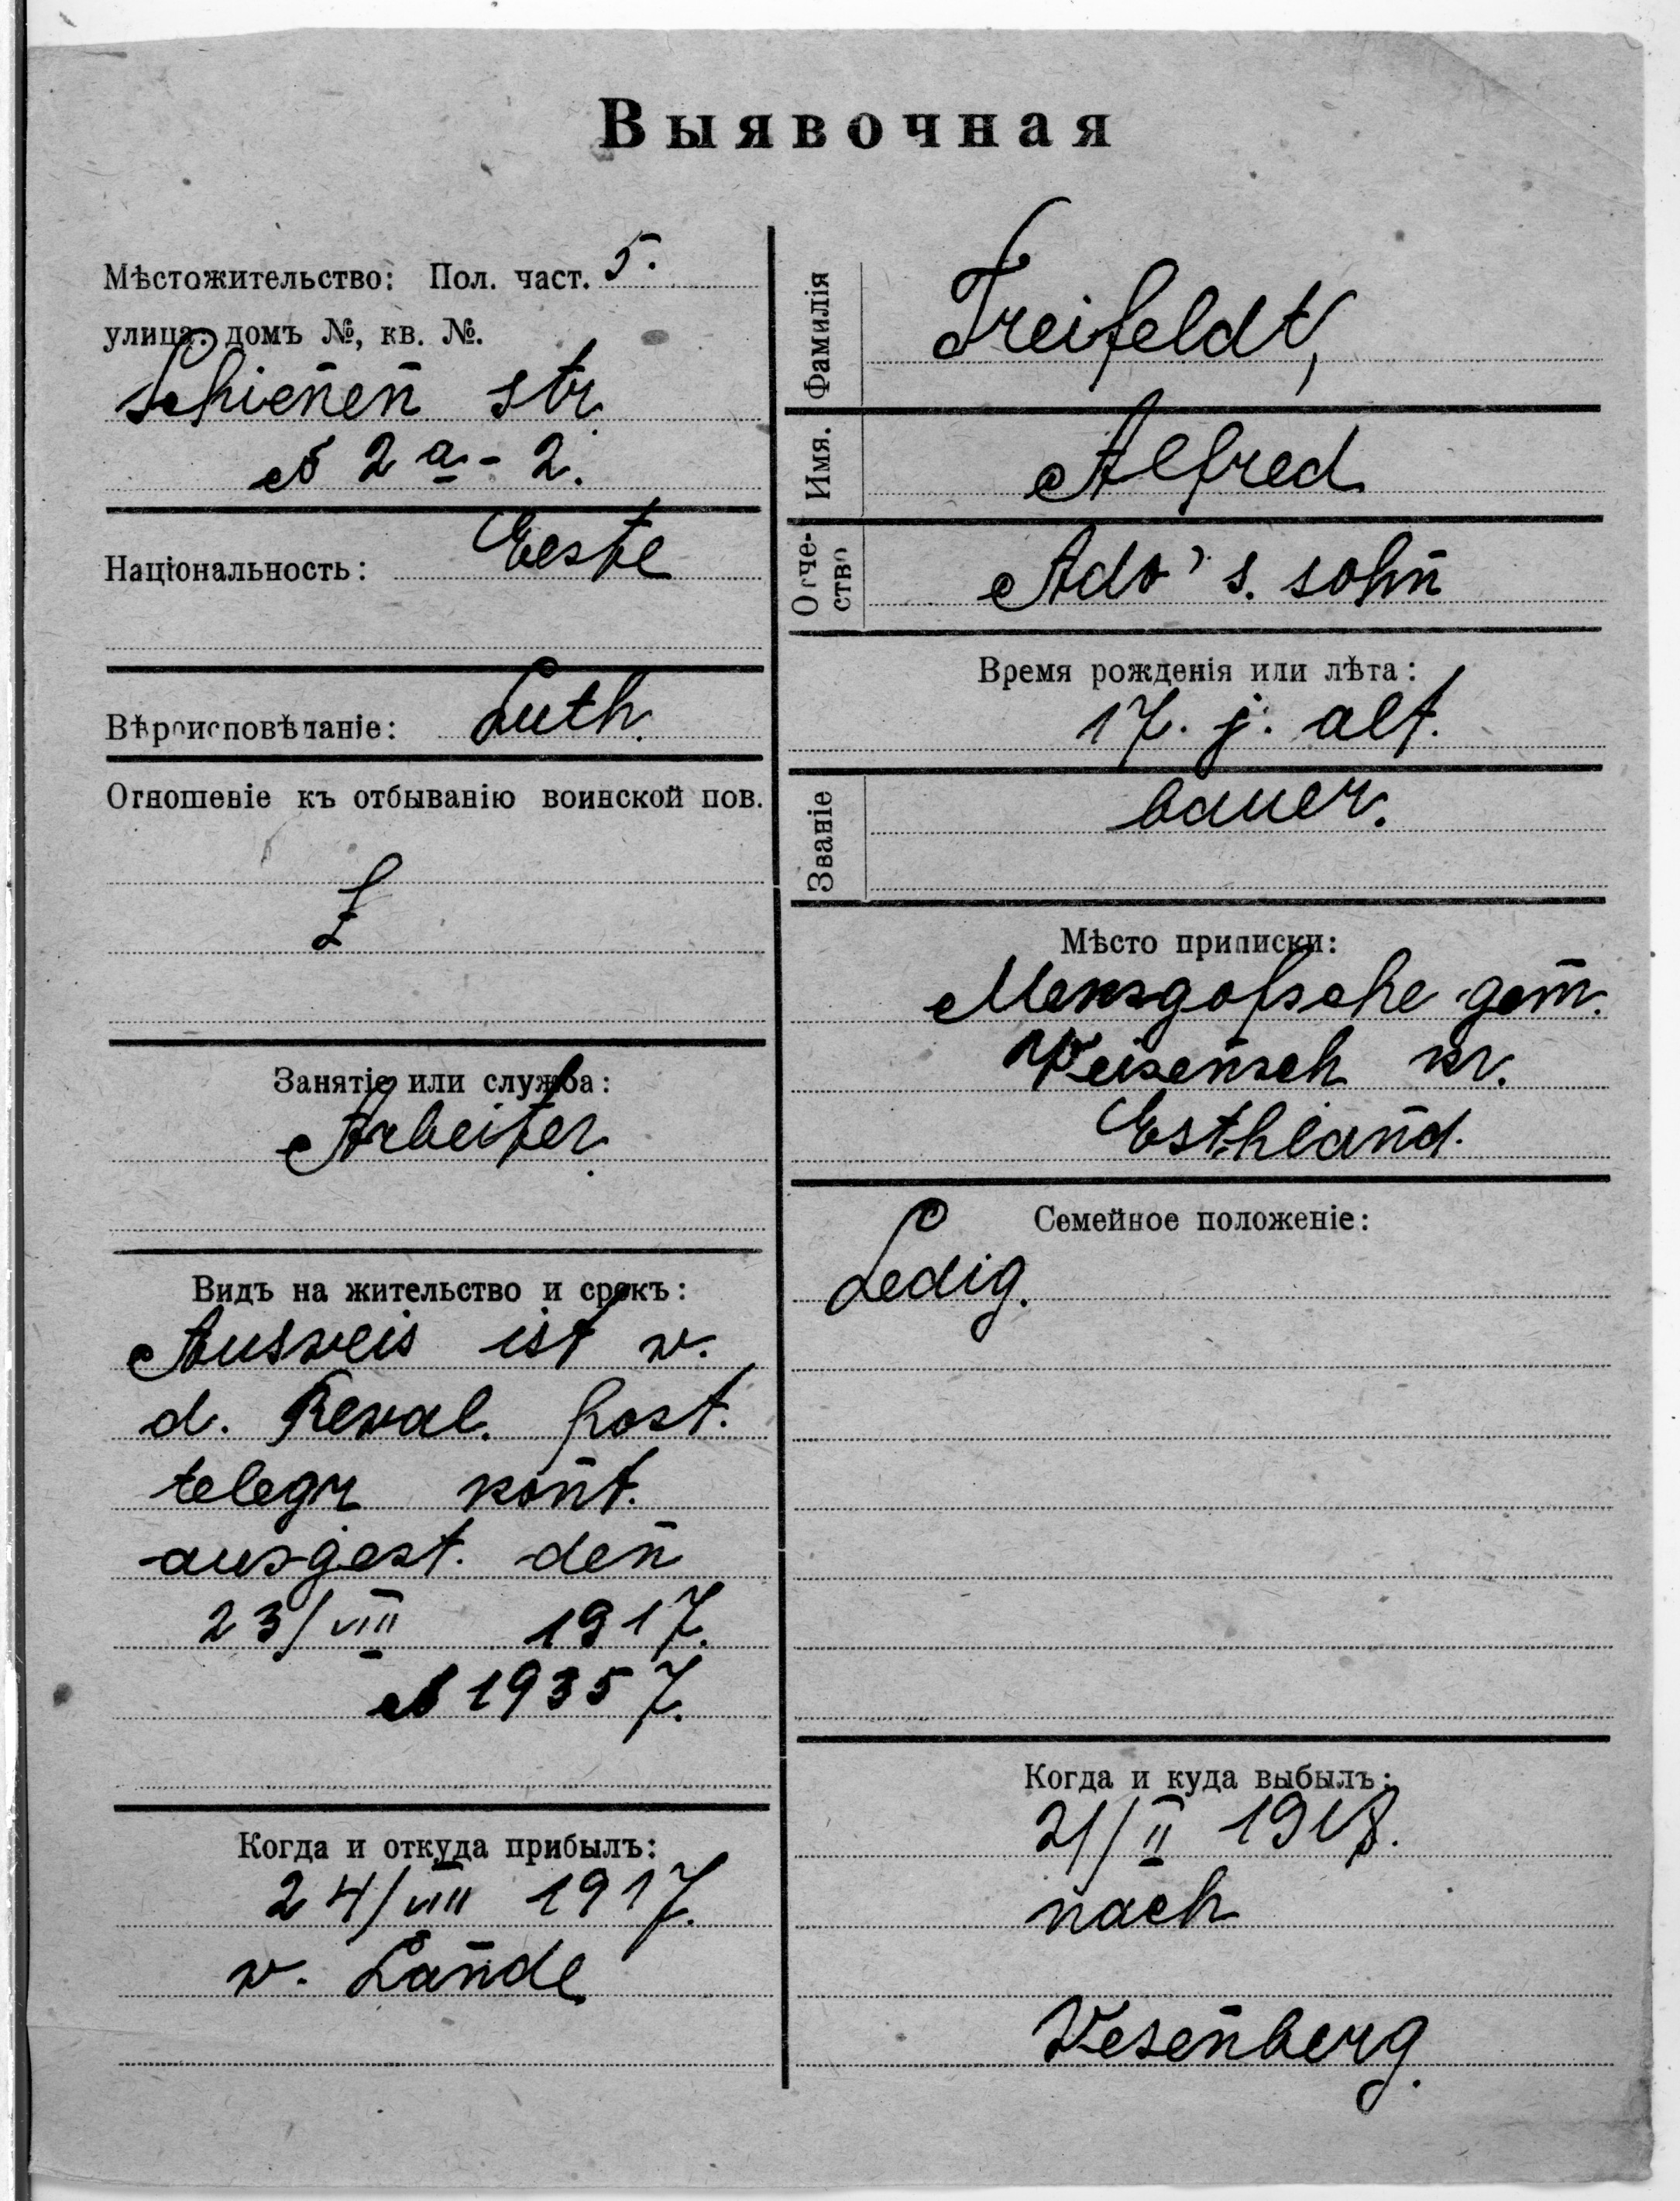 Выявочная
Мѣстожительство: Пол. част. 5.
улица: домъ №, кв. №.
Schienen str.
№ 2 a - 2.
Національность: Eeste
Вѣроисповѣданіе: Luth.
Отношеніе къ отбыванію воинской пов.
Занятіе или служба:
Arbeiter.
Видъ на жительство и срокъ:
Ausweis ist v.
d. Reval. Post.
telegr kont.
ausgest. den
23/VIII 1917.
№ 19357.
Когда и откуда прибылъ:
24/VIII 1917.
v. Lande
Фамилія Freifeldt,
Имя. Alfred
Отче-
ство Ado's. sohn
Время рожденія или лѣта:
17. j. alt.
Званіе bauer.
Мѣсто приписки:
gem.
kr.
Esthland.
Семейное положеніе:
Ledig.
Когда и куда выбылъ:
21/II 1918.
nach
Vesenberg.